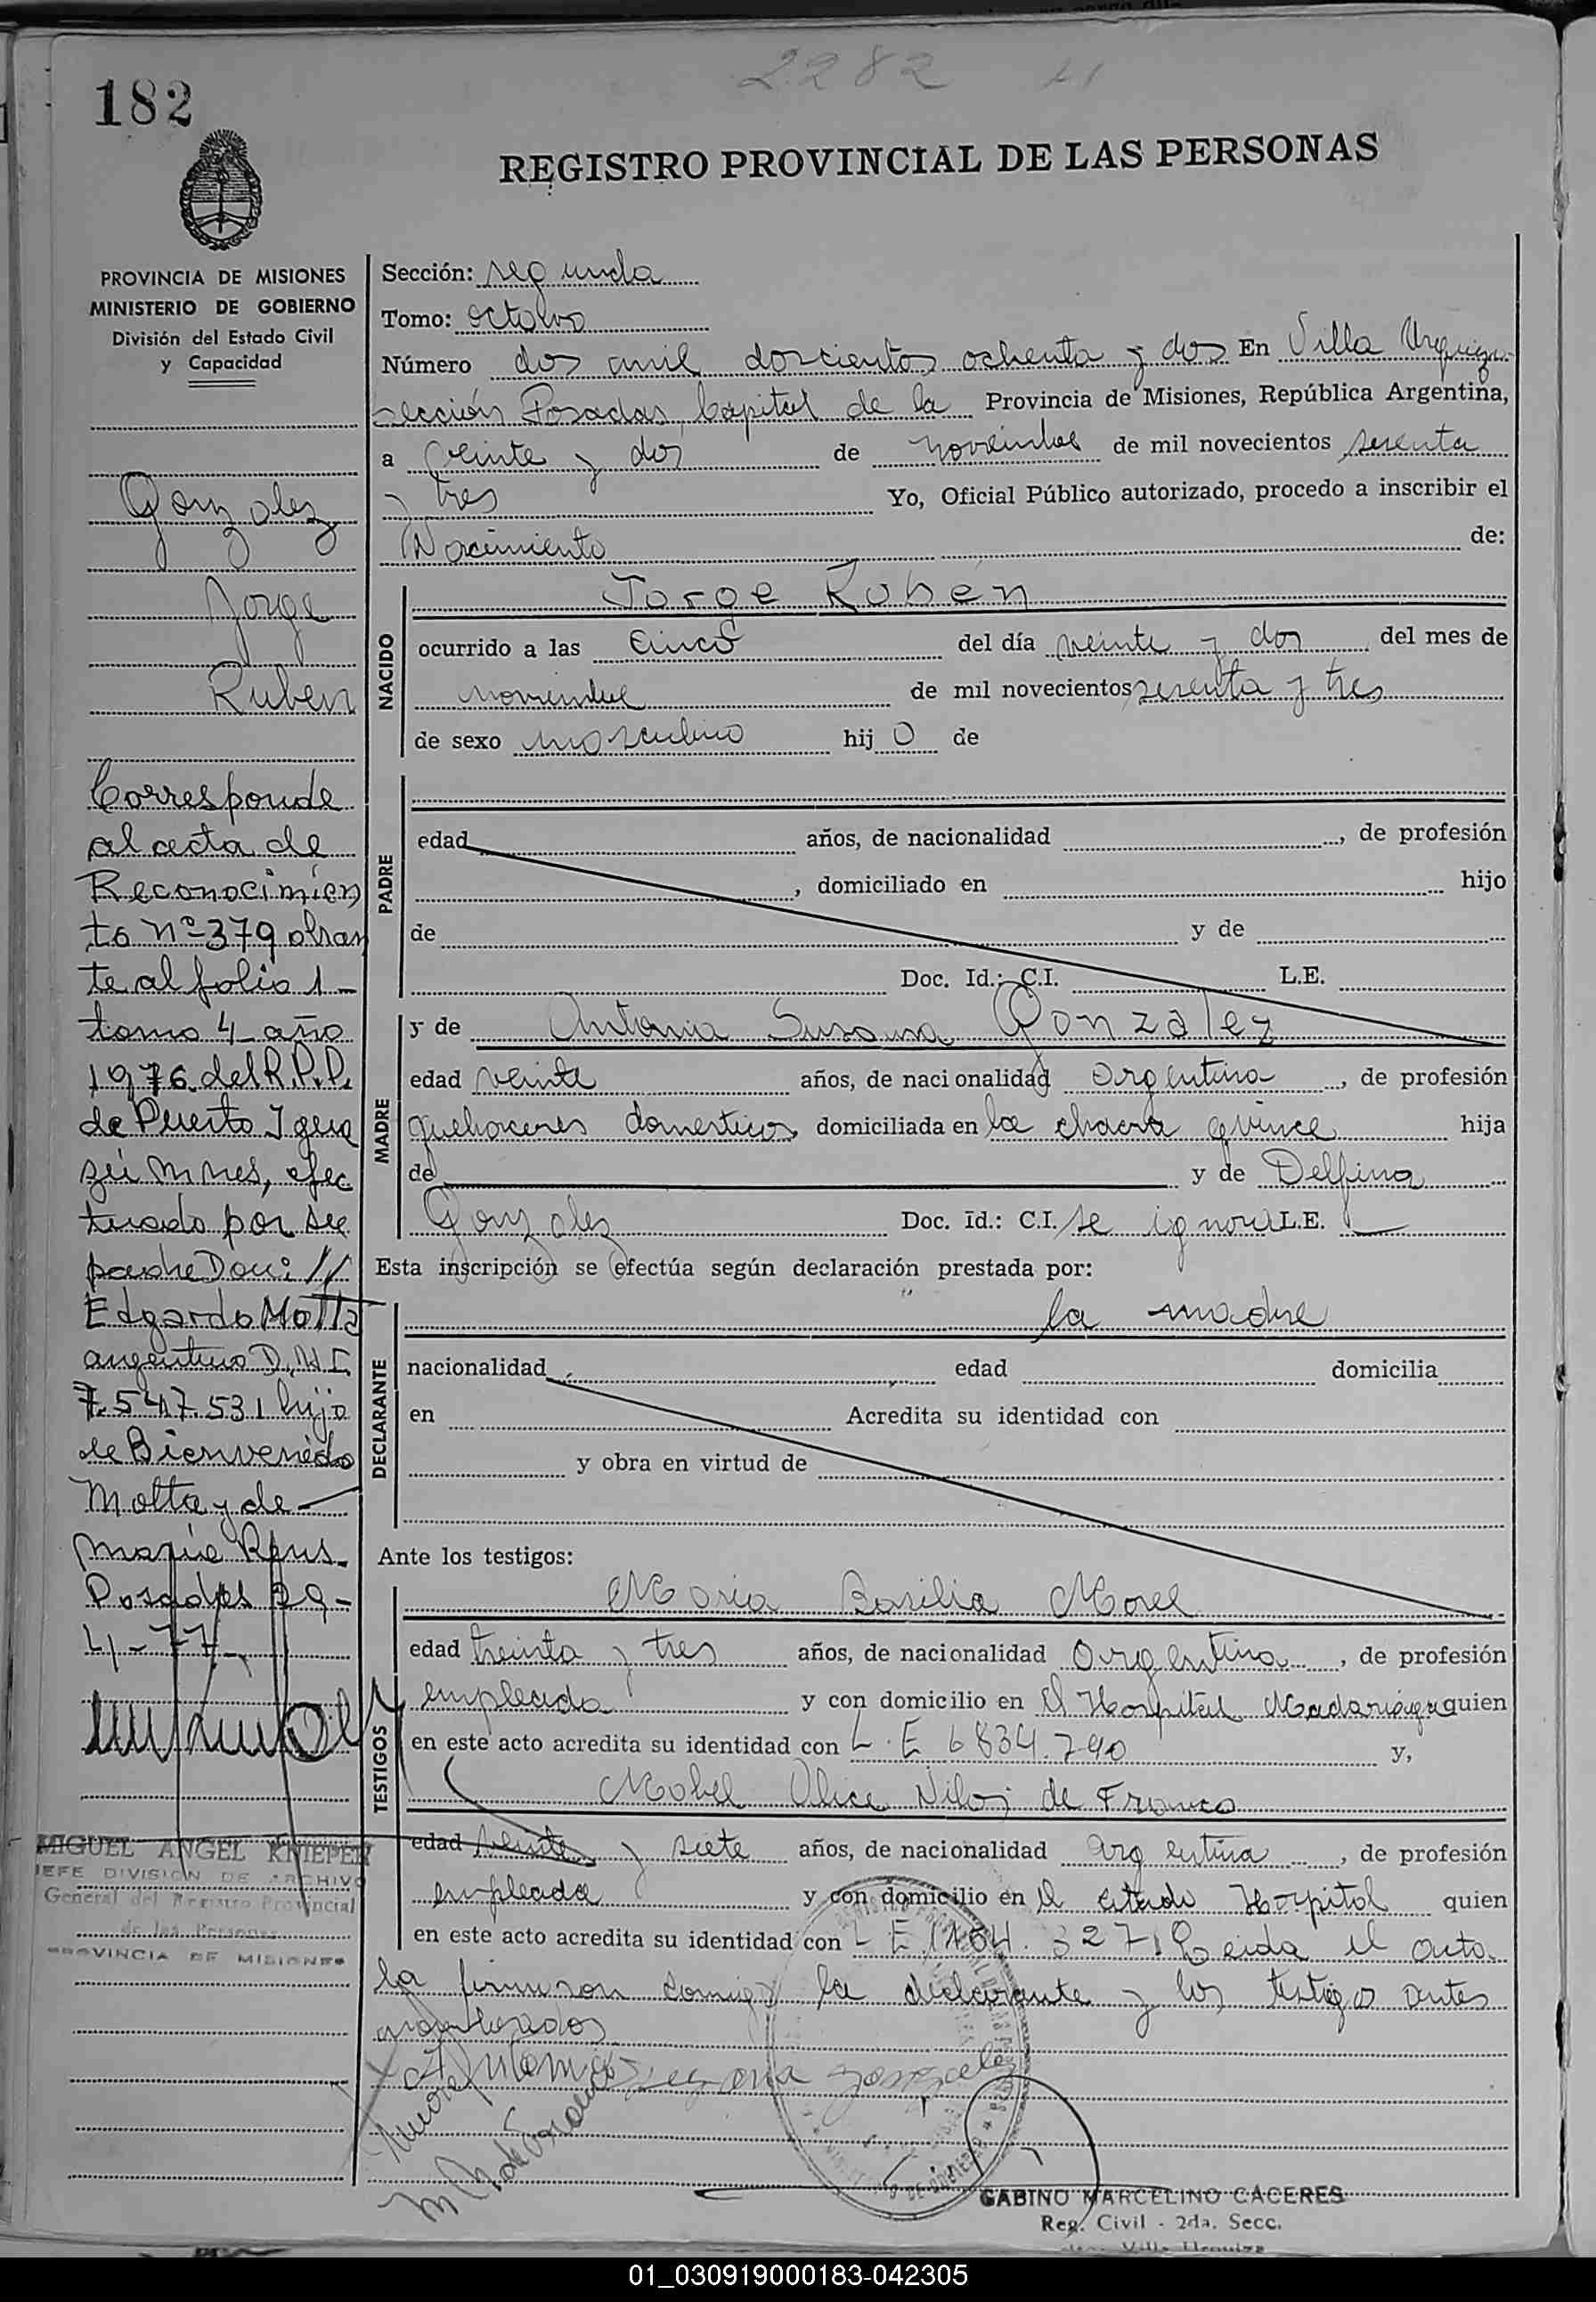 182
2282
REGISTRO PROVINCIAL DE LAS PERSONAS
PROVINCIA DE MISIONES
MINISTERIO DE GOBIERNO
División del Estado Civil
y Capacidad
Gonzalez
Jorge
Ruben
Corresponde
al acta de
Reconocimien
to nº 379 obran
te al folio 1-
tomo 4 año
1976 del R.P.P.
de Puerto Igua
zú Mnes, efec
tuado por su
padre Don: //
Edgardo Motta
argentino D.N.I.
7.547.531 hijo
de Bienvenido
Motta y de
María
Posadas 29-
4-77-
MIGUEL ANGEL KNIEPER
JEFE DIVISION DE ARCHIVO
General del Registro Provincial
de las Personas
PROVINCIA DE MISIONES
Sección: segunda
Tomo: octavo
Número dos mil doscientos ochenta y dos En Villa Urquiza
sección Posadas, Capital de la Provincia de Misiones, República Argentina,
a veinte y dos de noviembre de mil novecientos sesenta
y tres Yo, Oficial Público autorizado, procedo a inscribir el
Nacimiento de:
NACIDO
Jorge Rubén
ocurrido a las cinco del día veinte y dos del mes de
noviembre de mil novecientos sesenta y tres
de sexo masculino hijo de
PADRE
edad años, de nacionalidad , de profesión
, domiciliado en hijo
de y de
Doc. Id.: C.I. L.E.
MADRE
y de Antonia Susana Gonzalez
edad veinte años, de nacionalidad argentina , de profesión
quehaceres domesticos, domiciliada en la chacra quince hija
de y de Delfina
Gonzalez Doc. Id.: C.I. se ignora L.E.
Esta inscripción se efectúa según declaración prestada por:
DECLARANTE
la madre
nacionalidad edad domicilia
en Acredita su identidad con
y obra en virtud de
Ante los testigos:
TESTIGOS
Maria Basilia Morel
edad treinta y tres años, de nacionalidad argentina , de profesión
empleada y con domicilio en el Hospital Madariaga quien
en este acto acredita su identidad con L.E 6834.790 y,
Mabel Alice de Franco
edad veinte y siete años, de nacionalidad argentina , de profesión
empleada y con domicilio en el citado Hospital quien
en este acto acredita su identidad con L E 327. Leida el acta
la firman conmigo la declarante y los testigos antes
nombrados
Antonia Gonzalez
GABINO MARCELINO CACERES
Reg. Civil - 2da. Secc.
Villa Urquiza
01_030919000183-042305